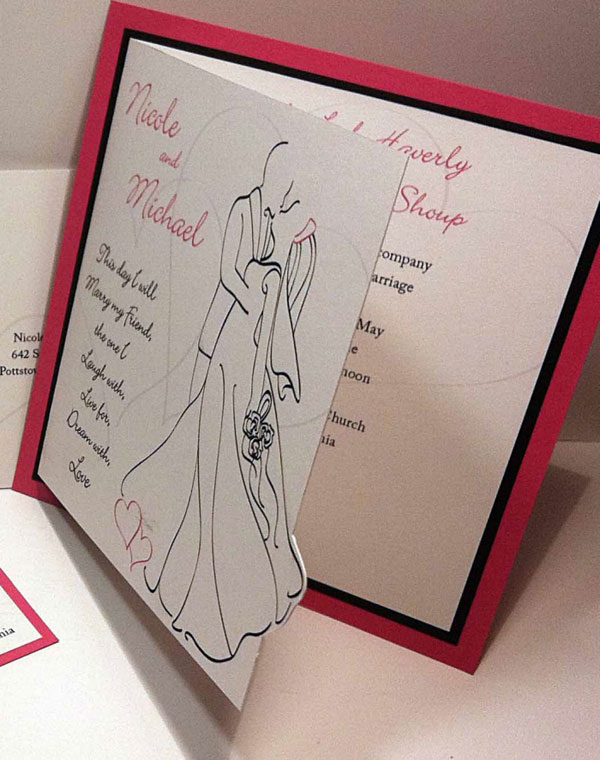 Nicole
and
Michael
This day I will
Marry my Friend,
the one I
Laugh with,
Live for,
Dream with,
Love
Haverly
Shoup
company
May
Church
Nicole
642 S